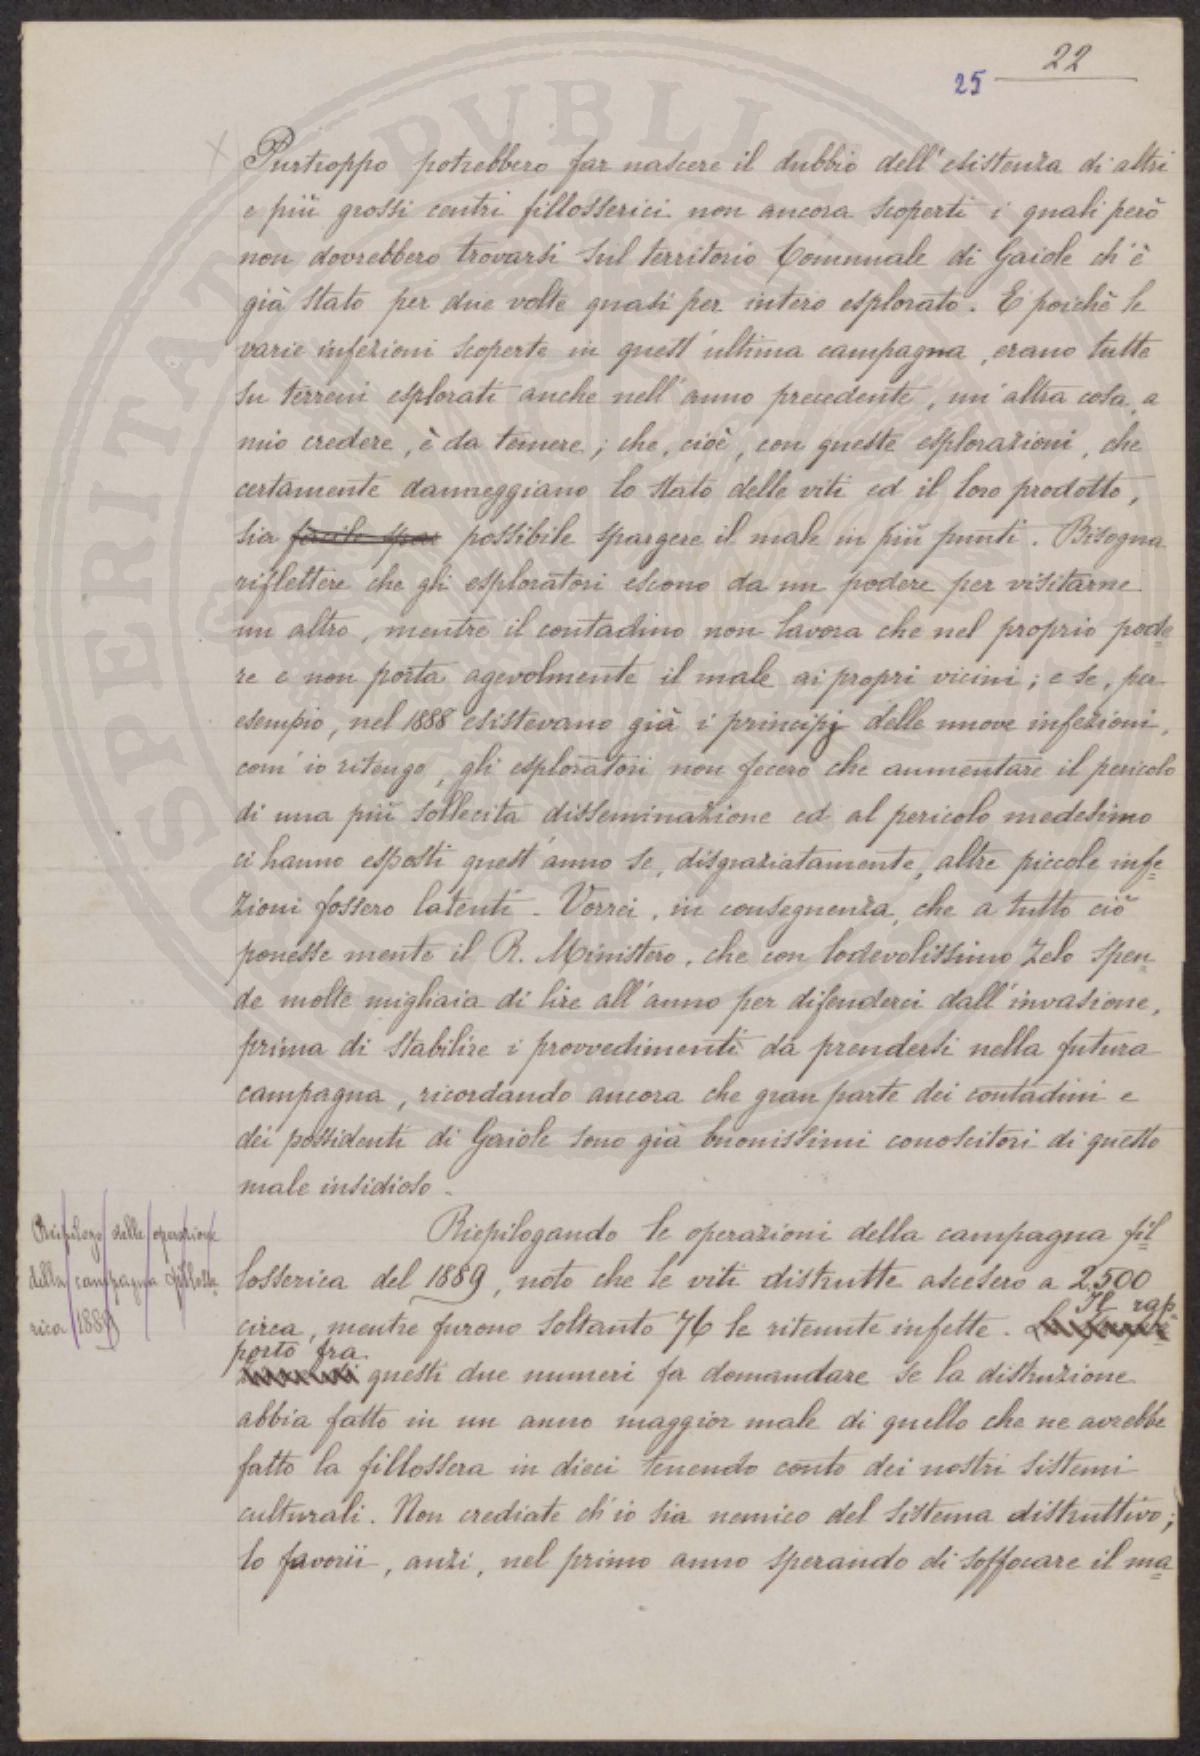 22
25
Purtroppo potrebbero far nascere il dubbio dell'esistenza di altri
e più grossi centri fillosserici non ancora scoperti i quali però
non dovrebbero trovarsi sul territorio Comunale di Gaiole ch'è
già stato per due volte quasi per intero esplorato. E poichè le
varie infezioni scoperte in quest'ultima campagna, erano tutte
su terreni esplorati anche nell'anno precedente, un'altra cosa, a
mio credere, è da temere; che, cioè, con queste esplorazioni, che
certamente danneggiano lo stato delle viti ed il loro prodotto,
sia facile spar possibile spargere il male in più punti. Bisogna
riflettere che gli esploratori escono da un podere per visitarne
un altro, mentre il contadino non lavora che nel proprio pode=
re e non porta agevolmente il male ai propri vicini; e se, per
esempio, nel 1888 esistevano già i principj delle nuove infezioni,
com'io ritengo, gli esploratori non fecero che aumentare il pericolo
di una più sollecita disseminazione ed al pericolo medesimo
ci hanno esposti quest'anno se, disgraziatamente, altre piccole infe=
zioni fossero latenti. Vorrei, in conseguenza, che a tutto ciò
ponesse mente il R. Ministero, che con lodevolissimo zelo spen=
de molte migliaia di lire all'anno per difenderci dall'invasione,
prima di stabilire i provvedimenti da prendersi nella futura
campagna, ricordando ancora che gran parte dei contadini e
dei possidenti di Gaiole sono già buonissimi conoscitori di questo
male insidioso.
Riepilogo delle operazione
della campagna fillosse=
rica 1889
Riepilogando le operazioni della campagna fil=
losserica del 1889, noto che le viti distrutte ascesero a 2500
circa, mentre furono soltanto 76 le ritenute infette. Il rap=
porto fra questi due numeri fa domandare se la distruzione
abbia fatto in un anno maggior male di quello che ne avrebbe
fatto la fillossera in dieci tenendo conto dei nostri sistemi
culturali. Non crediate ch'io sia nemico del sistema distruttivo;
lo favorii, anzi, nel primo anno sperando di soffocare il ma=